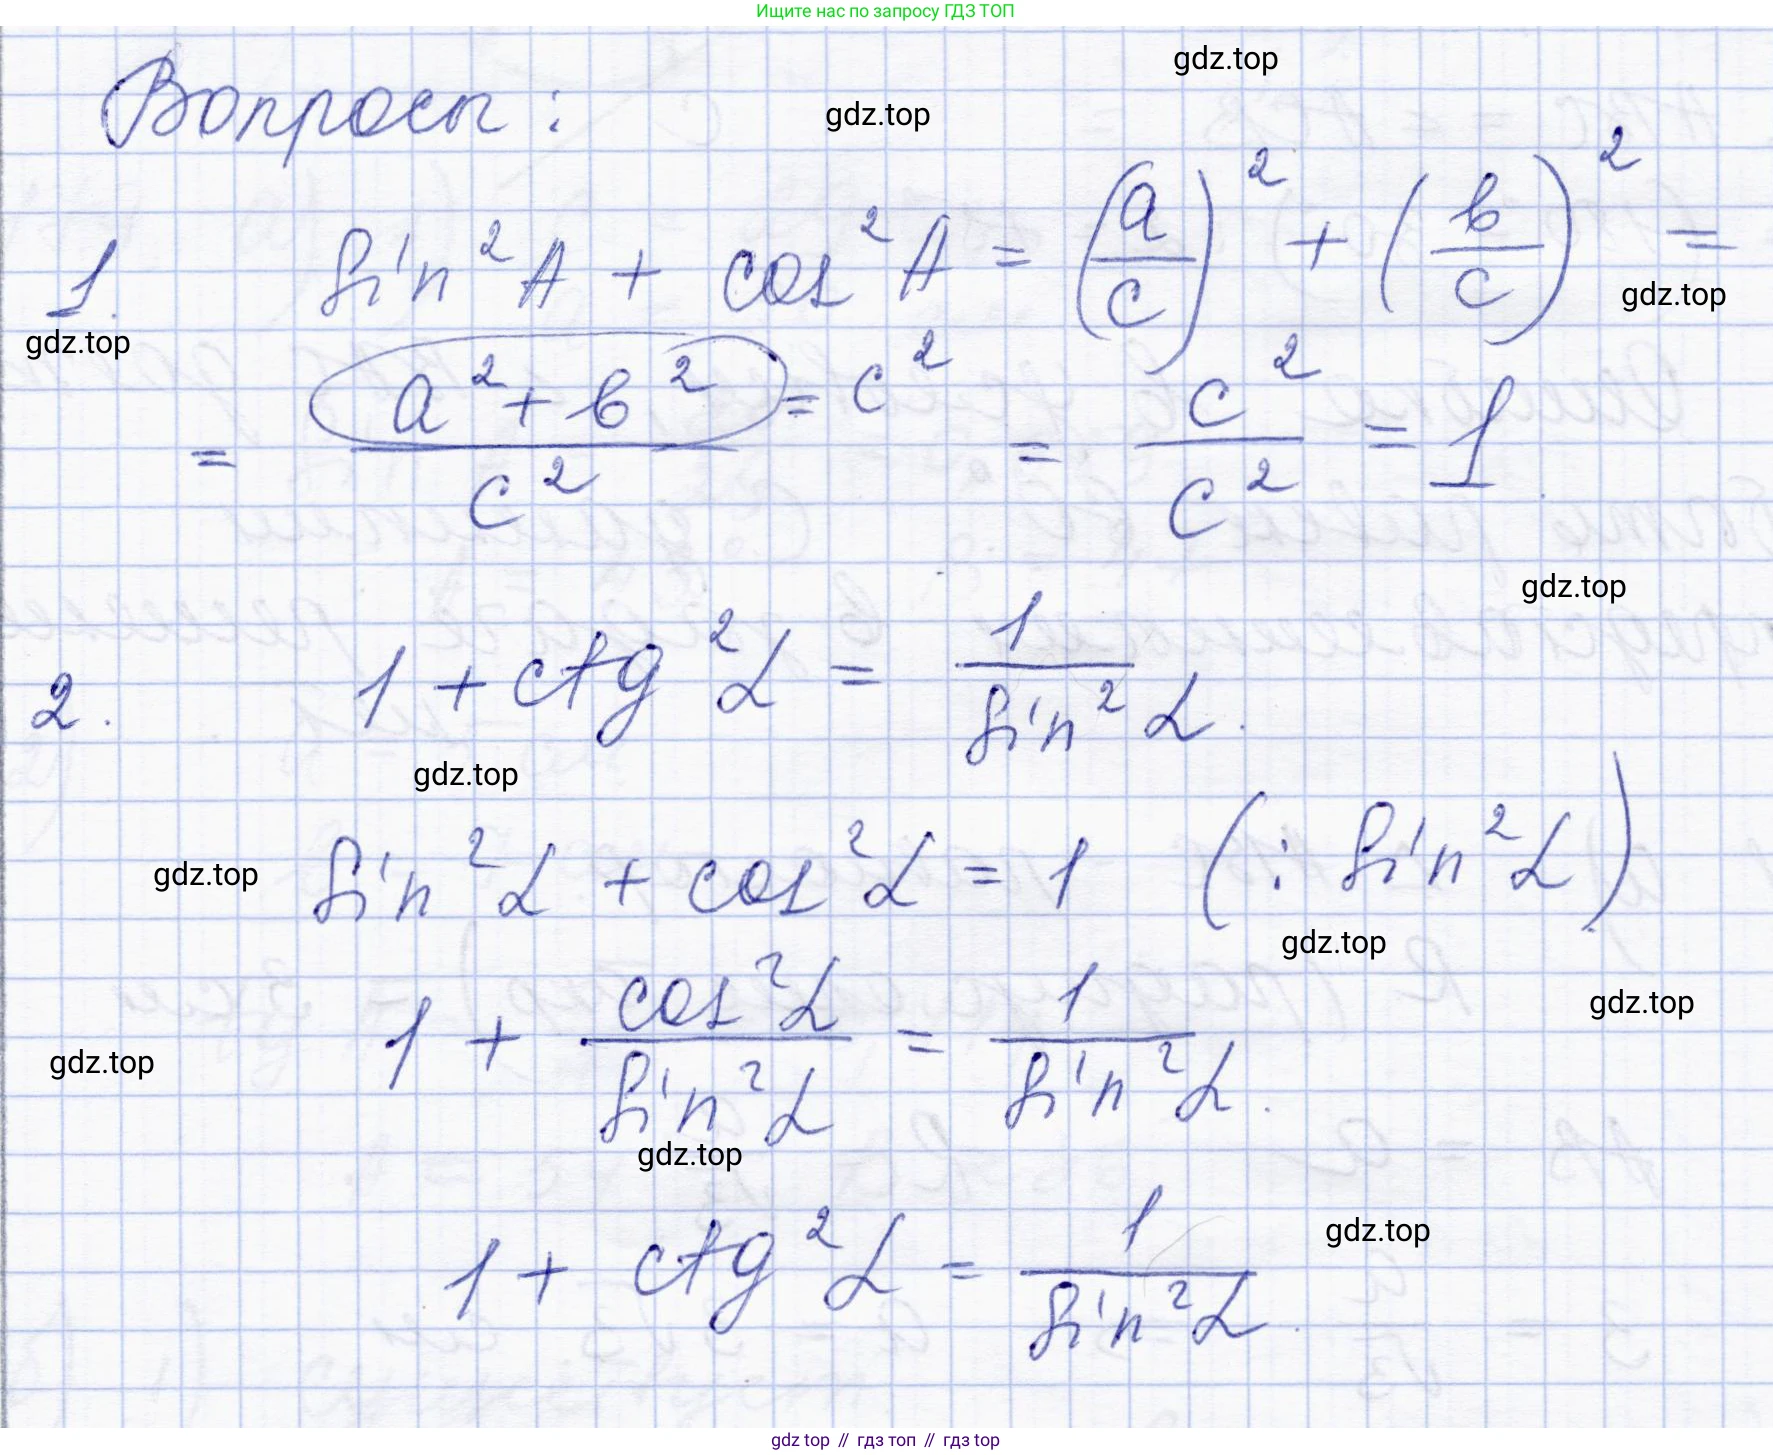 Ищите нас по запросу ГДЗ ТОП
gdz.top
Вопросы:
gdz.top
1. sin²A + cos²A = (a/c)² + (b/c)² =
gdz.top
gdz.top
= (a² + b²)/c² = c² = c²/c² = 1.
gdz.top
2. 1 + ctg²α = 1/sin²α.
gdz.top
sin²α + cos²α = 1 (: sin²α)
gdz.top
gdz.top
1 + cos²α/sin²α = 1/sin²α.
gdz.top
gdz.top
gdz.top
1 + ctg²α = 1/sin²α.
gdz.top
gdz top // гдз топ // гдз top